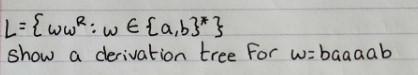 L={wwᴿ: w ∈ {a,b}*}
show a derivation tree for w=baaaab